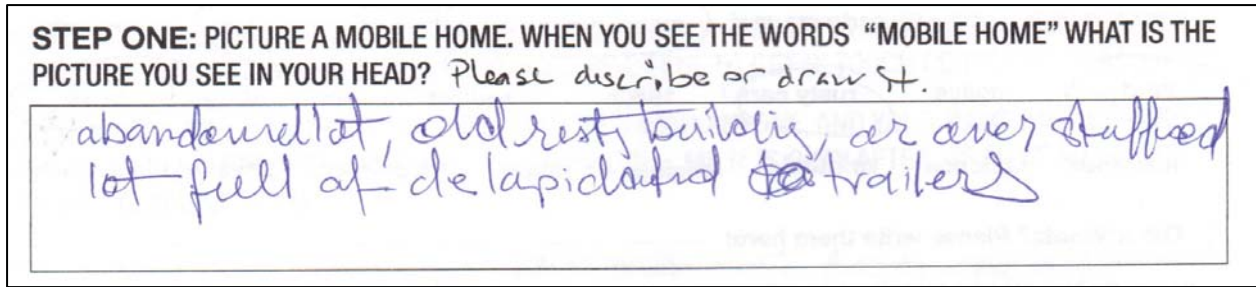 STEP ONE: PICTURE A MOBILE HOME. WHEN YOU SEE THE WORDS “MOBILE HOME” WHAT IS THE
PICTURE YOU SEE IN YOUR HEAD? Please describe or draw it.
abandoned lot, old rusty building, or over stuffed
lot full of delapidated trailers